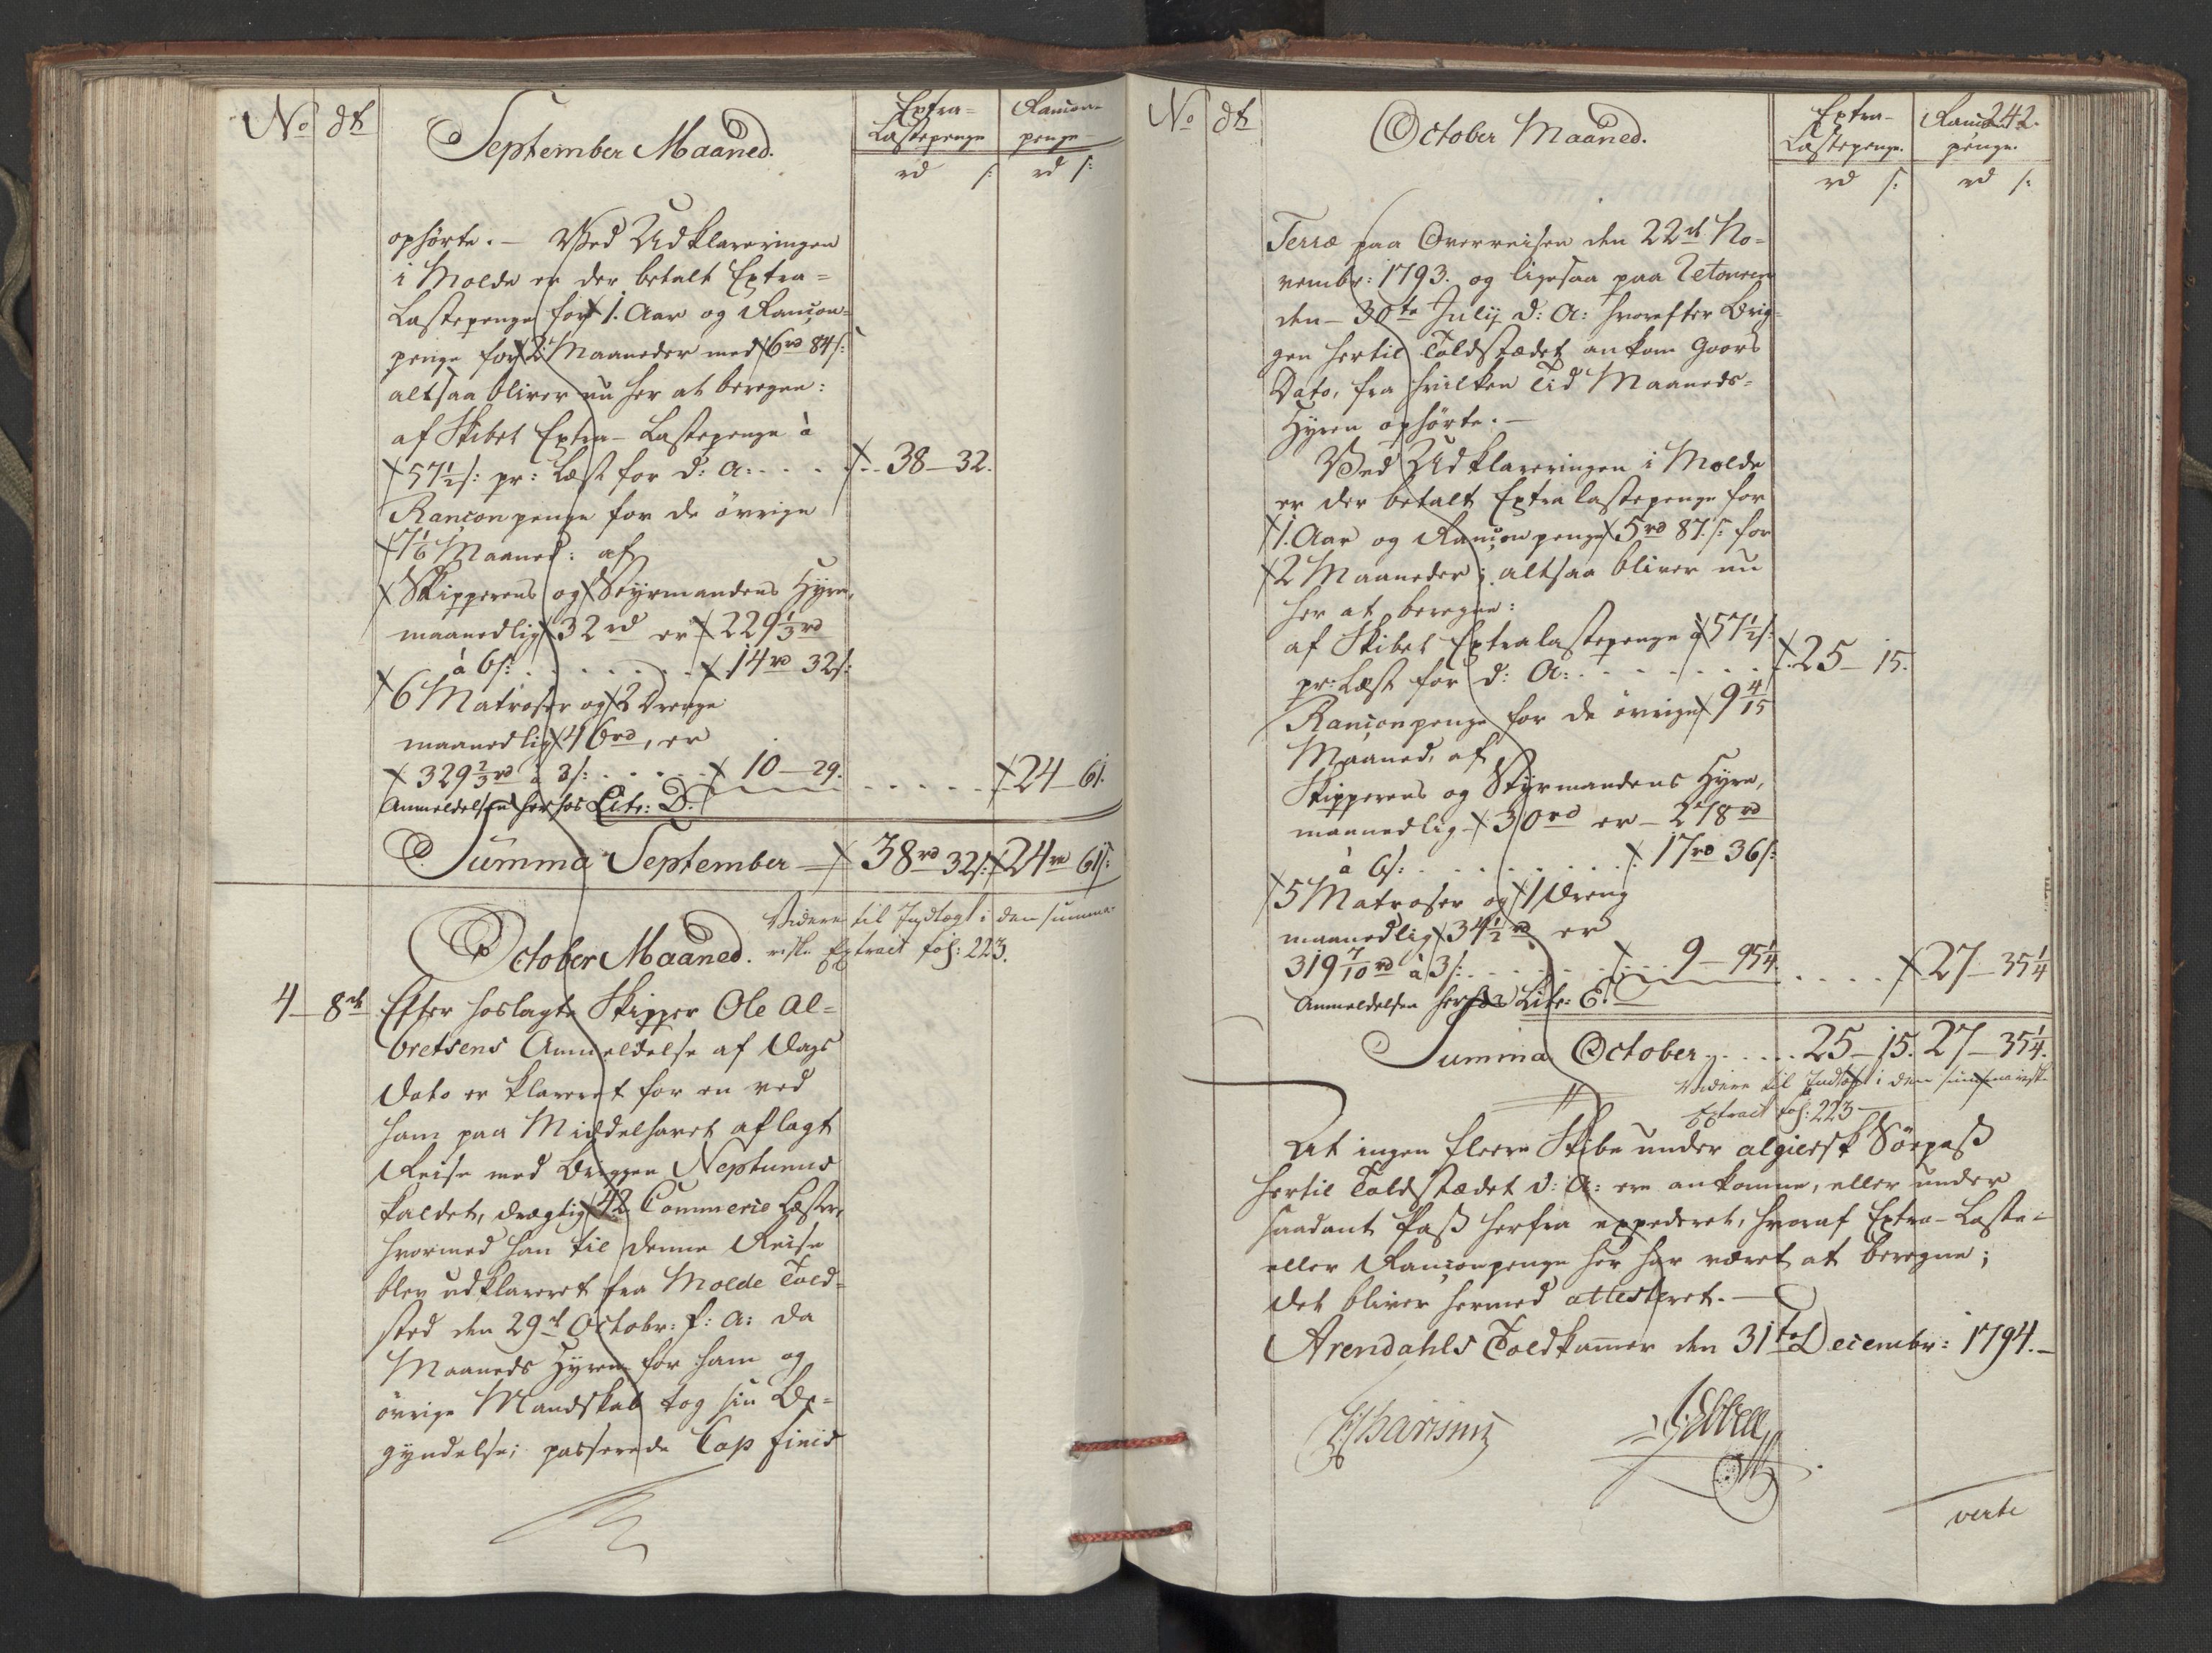 No dt September Maaned. Extra= Lastepenge Rancon= penge
rd s: rd s:
ophörte. — Ved Udklareringen
i Molde er der betalt Extra=
Lastepenge for 1. Aar og Rançon=
penge for 2 Maaneder med 6 rd 84 s:
altsaa bliver nu her at beregne:
af Skibet Extra-Lastepenge à
57½ s: pr: Læst for d: A: . . . 38 — 32.
Rançonpenge for de övrige
7 1/6 Maaned: af
Skipperens og Styrmandens Hyre,
maanedlig 32 rd er 229 1/3 rd
à 6 s: . . . . . . 14 rd 32 s:
6 Matroser og 2 Drenge
maanedlig 46 rd, er
329 2/3 rd à 3 s: . . . . 10 — 29. . . . . . . 24 — 61.
Anmeldelsen herhos Litr: D.
Summa September — 38 rd 32 s: 24 rd 61 s:
Videre til Indtægt i den summa-
riske Extract fol: 223.
October Maaned.
4 — 8de Efter hoslagte Skipper Ole Al=
bretsens Anmeldelse af Dags
Dato er klareret for en ved
ham paa Middelhavet aflagt
Reise med Briggen Neptunus
kaldet, drægtig 42 Commerce Læster,
hvormed han til denne Reise
blev udklareret fra Molde Told=
sted den 29de Octobr: f: A: da
Maaneds Hyren for ham og
övrige Mandskab tog sin Be=
gyndelse; passerede Cap finis
No dt October Maaned. Extra- Lastepenge. Rancon- penge. 242.
rd s: rd s:
Terræ paa Overreisen den 22de No=
vembr: 1793. og ligesaa paa Retouren
den 30te Julij d: A: hvorefter Brig=
gen hertil Toldstædet ankom Gaars
Dato, fra hvilken Tid Maaneds=
Hyren ophörte. —
Ved Udklareringen i Molde
er der betalt Extra lastepenge for
1. Aar og Rançonpenge 5 rd 87 s: for
2 Maaneder; altsaa bliver nu
her at beregne:
af Skibet Extralastepenge à 57½ s:
pr: Læst for d: A: . . . . . . . 25 — 15.
Rançonpenge for de övrige 9 4/15
Maaned, af
Skipperens og Styrmandens Hyre,
maanedlig 30 rd er — 278 rd
à 6 s: . . . . . . . 17 rd 36 s:
5 Matroser og 1 Dreng
maanedlig 34½ rd er
319 7/10 rd à 3 s: . . . . . . 9 — 95¼. . . . . 27 — 35¼
Anmeldelsen herhos Litr: E.
Summa October . . . . . 25 — 15. 27 — 35¼.
Videre til Indtægt i den summariske
Extract fol: 223
At ingen fleere Skibe under algiersk Söepass
hertil Toldstædet d: A: ere ankomne, eller under
saadant Pass herfra expederet, hvoraf Extra-Laste=
eller Rançonpenge her har været at beregne;
det bliver hermed attesteret. —
Arendahls Toldkammer den 31te Decembr: 1794. —
verte